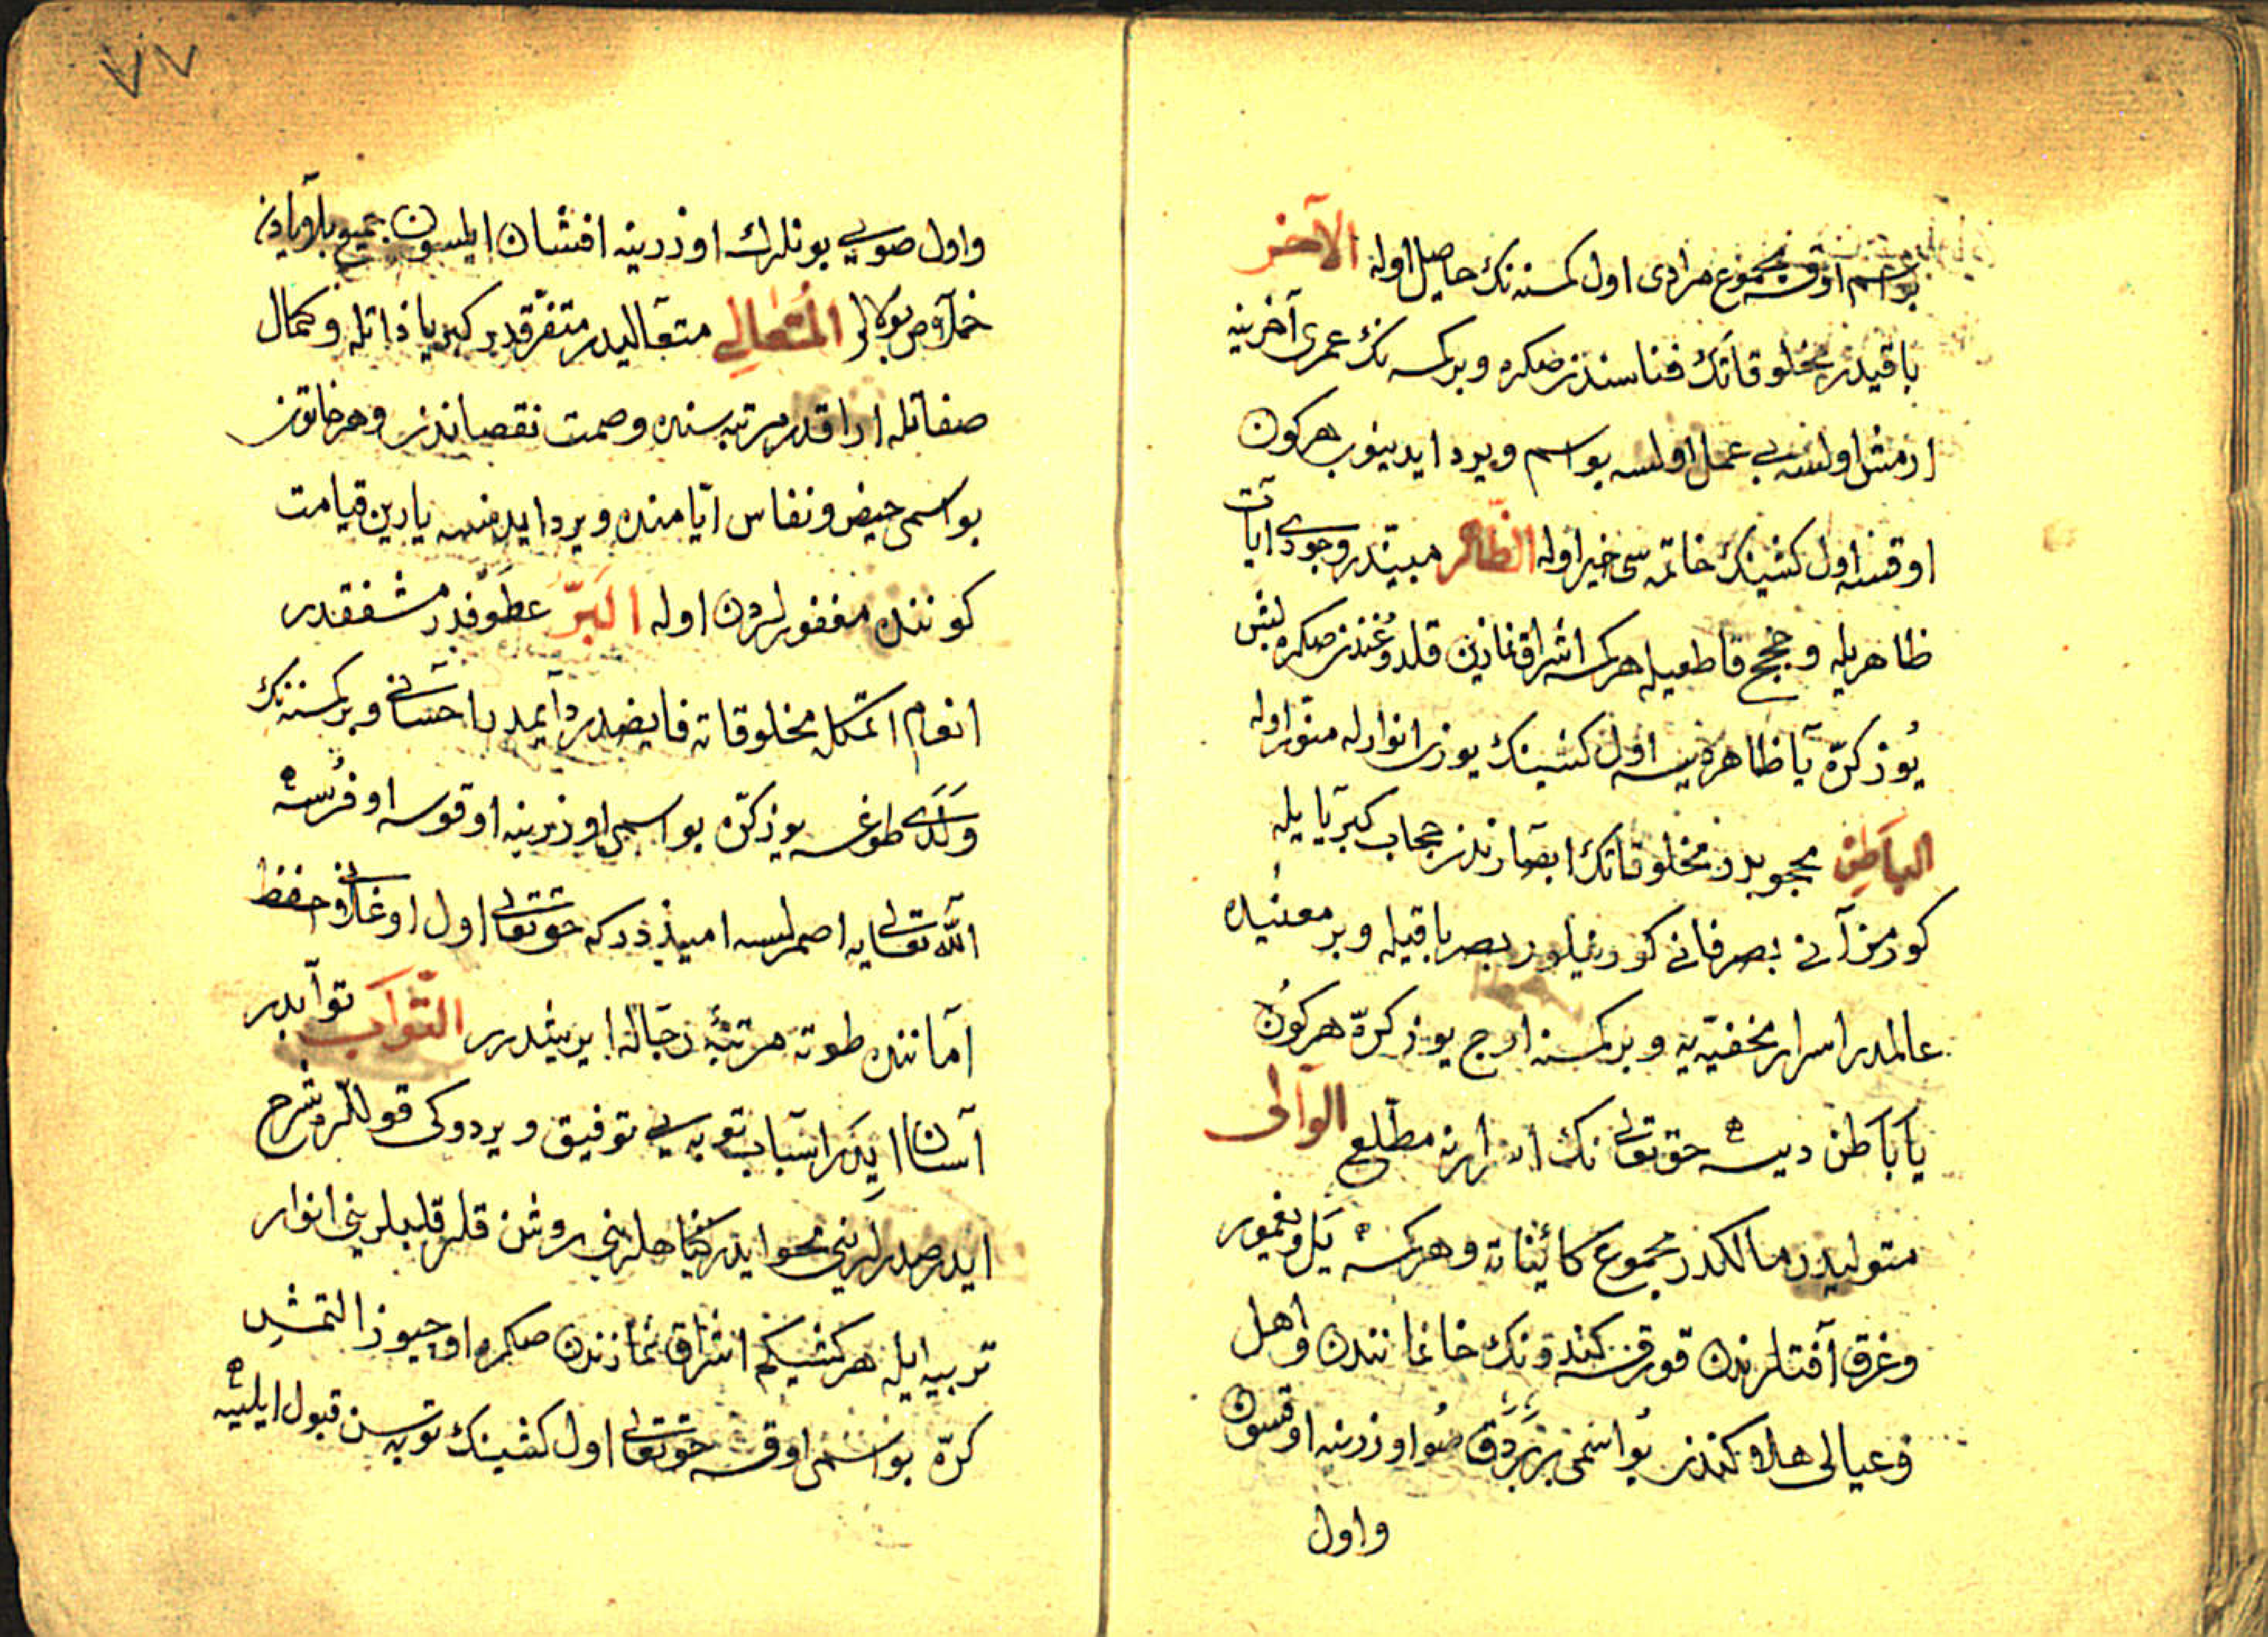 بو اسم اوقسه مجموع مرادی اول کمسنه نك حاصل اوله الآخر
باقیدر مخلوقاتك فناسندن صکره و بر کمسه نك عمری آخرینه
ارمش اولسه بی عمل اولسه بو اسم ویرد ایدینوب هرکون
اوقسه اول کشینك خاتمه سی خیر اوله الظاهر مبیندر وجودی ایات
ظاهریله و حجج قاطعیله هرکه اشراق نمازین قلدوغندن صکره بش
یوز کرّه یا ظاهر دیسه اول کشینك یوزی انوارله منوّر اوله
الباطن محجوبدر مخلوقاتك ابصارندن حجاب کبریا یله
کورمز آنی بصر فانی کورینلور بصر باقیله و بر معنیده
عالمدر اسرار مخفیّه یه و بر کمسنه اوج یوز کرّه هرکون
یا باطن دیسه حق تعالی نك اسرارنه مطّلع الوالی
متولیدر مالکدر مجموع کائیناته و هرکسه یل و یغمور
و غرق آفتلرندن قورقسه کندونك خانمانندن و اهل
و عیالی هلاکندن بو اسمی بر بردق صو اوزرینه اوقسون
واول
واول صویی بونلرك اوزرینه افشان ایلسون جمیع بلاویادن
خلاص بوله لر المتعالی متعالیدر متفرّقدر کبریا ذاتله و کمال
صفاتله اراقدر مرتبه سنده وصمت نقصاندن و هر خاتون
بو اسمی حیض و نفاس ایّامنده ویرد ایدنسه یارین قیامت
کوننده مغفورلردن اوله البرّ عطوفدر مشفقدر
انعام اتمکله مخلوقاته فایضدر دایمدر احسانی و بر کمسنه نك
ولدی طوغسه یوز کرّه بو اسمی اوزرینه اوقوسه اوفرسه
الله تعالی یه اصمرلسه امیذدر که حق تعالی اول اوغلانی حفظ
اماننده طوته مرتبۀ رجاله ایریشدرر التّواب توابدر
آسان ایدر اسباب توبه یی توفیق ویردوکی قوللره شرح
ایدر صدرلرینی محو ایدر کناهلرینی روشن قلر قلبلرینی انوار
تربیه ایله هر کشیکم اشراق نمازندن صکره اوچیوز التمش
کرّه بو اسمی اوقسه حق تعالی اول کشینك توبه سن قبول ایلیه